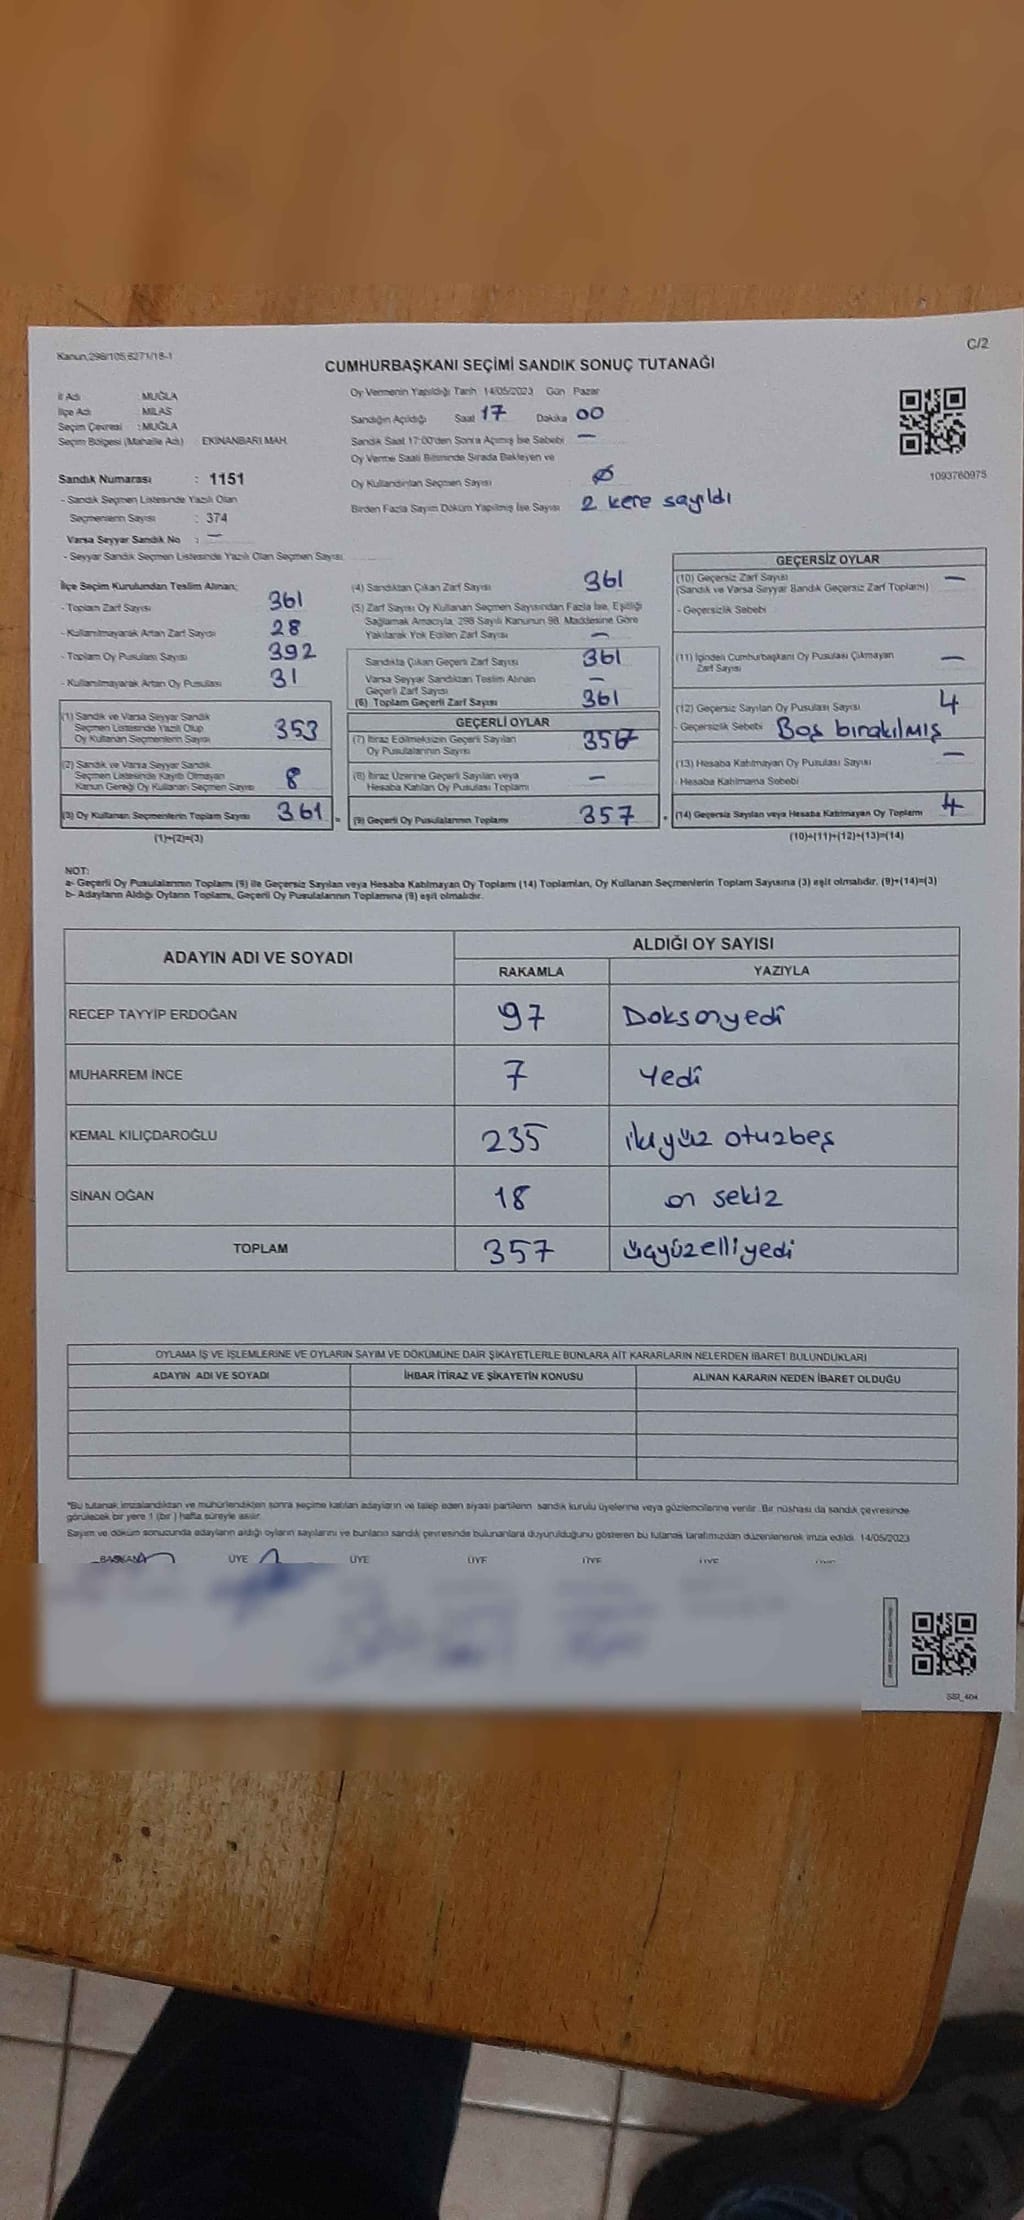 Kanun,298/105,6271/18-1
C/2
CUMHURBAŞKANI SEÇİMİ SANDIK SONUÇ TUTANAĞI
İl Adı MUĞLA
İlçe Adı MİLAS
Seçim Çevresi : MUĞLA
Seçim Bölgesi (Mahalle Adı) EKİNANBARI MAH.
Oy Vermenin Yapıldığı Tarih 14/05/2023 Gün Pazar
Sandığın Açıldığı Saat 17 Dakika 00
Sandık Saat 17:00'den Sonra Açımış İse Sebebi —
Oy Verme Saati Bitiminde Sırada Bekleyen ve
Oy Kullandırılan Seçmen Sayısı : Ø
Birden Fazla Sayım Döküm Yapılmış İse Sayısı 2 kere sayıldı
1093760975
Sandık Numarası : 1151
- Sandık Seçmen Listesinde Yazılı Olan
Seçmenlerin Sayısı : 374
Varsa Seyyar Sandık No : —
- Seyyar Sandık Seçmen Listesinde Yazılı Olan Seçmen Sayısı
İlçe Seçim Kurulundan Teslim Alınan;
- Toplam Zarf Sayısı 361
- Kullanılmayarak Artan Zarf Sayısı 28
- Toplam Oy Pusulası Sayısı 392
- Kullanılmayarak Artan Oy Pusulası 31
(1) Sandık ve Varsa Seyyar Sandık
Seçmen Listesinde Yazılı Olup
Oy Kullanan Seçmenlerin Sayısı 353
(2) Sandık ve Varsa Seyyar Sandık
Seçmen Listesinde Kayıtlı Olmayan
Kanun Gereği Oy Kullanan Seçmen Sayısı 8
(3) Oy Kullanan Seçmenlerin Toplam Sayısı 361
(1)+(2)=(3)
(4) Sandıktan Çıkan Zarf Sayısı 361
(5) Zarf Sayısı Oy Kullanan Seçmen Sayısından Fazla İse, Eşitliği
Sağlamak Amacıyla, 298 Sayılı Kanunun 98. Maddesine Göre
Yakılarak Yok Edilen Zarf Sayısı —
Sandıkta Çıkan Geçerli Zarf Sayısı 361
Varsa Seyyar Sandıktan Teslim Alınan
Geçerli Zarf Sayısı —
(6) Toplam Geçerli Zarf Sayısı 361
GEÇERLİ OYLAR
(7) İtiraz Edilmeksizin Geçerli Sayılan
Oy Pusulalarının Sayısı 357
(8) İtiraz Üzerine Geçerli Sayılan veya
Hesaba Katılan Oy Pusulası Toplamı —
= (9) Geçerli Oy Pusulalarının Toplamı 357
GEÇERSİZ OYLAR
(10) Geçersiz Zarf Sayısı —
(Sandık ve Varsa Seyyar Sandık Geçersiz Zarf Toplamı)
- Geçersizlik Sebebi
(11) İçinden Cumhurbaşkanı Oy Pusulası Çıkmayan
Zarf Sayısı —
(12) Geçersiz Sayılan Oy Pusulası Sayısı 4
- Geçersizlik Sebebi Boş bırakılmış
(13) Hesaba Katılmayan Oy Pusulası Sayısı —
- Hesaba Katılmama Sebebi
+ (14) Geçersiz Sayılan veya Hesaba Katılmayan Oy Toplamı 4
(10)+(11)+(12)+(13)=(14)
NOT:
a- Geçerli Oy Pusulalarının Toplamı (9) ile Geçersiz Sayılan veya Hesaba Katılmayan Oy Toplamı (14) Toplamları, Oy Kullanan Seçmenlerin Toplam Sayısına (3) eşit olmalıdır. (9)+(14)=(3)
b- Adayların Aldığı Oyların Toplamı, Geçerli Oy Pusulalarının Toplamına (9) eşit olmalıdır.
ADAYIN ADI VE SOYADI ALDIĞI OY SAYISI
RAKAMLA YAZIYLA
RECEP TAYYİP ERDOĞAN 97 Doksanyedi
MUHARREM İNCE 7 Yedi
KEMAL KILIÇDAROĞLU 235 ikiyüz otuzbeş
SİNAN OĞAN 18 on sekiz
TOPLAM 357 üçyüzelliyedi
OYLAMA İŞ VE İŞLEMLERİNE VE OYLARIN SAYIM VE DÖKÜMÜNE DAİR ŞİKAYETLERLE BUNLARA AİT KARARLARIN NELERDEN İBARET BULUNDUKLARI
ADAYIN ADI VE SOYADI İHBAR İTİRAZ VE ŞİKAYETİN KONUSU ALINAN KARARIN NEDEN İBARET OLDUĞU
*Bu tutanak imzalandıktan ve mühürlendikten sonra seçime katılan adayların ve talep eden siyasi partilerin sandık kurulu üyelerine veya gözlemcilerine verilir. Bir nüshası da sandık çevresinde
görülecek bir yere 1 (bir ) hafta süreyle asılır.
Sayım ve döküm sonucunda adayların aldığı oyların sayılarını ve bunların sandık çevresinde bulunanlara duyurulduğunu gösteren bu tutanak tarafımızdan düzenlenerek imza edildi. 14/05/2023
BAŞKAN ÜYE ÜYE ÜYE ÜYE ÜYE